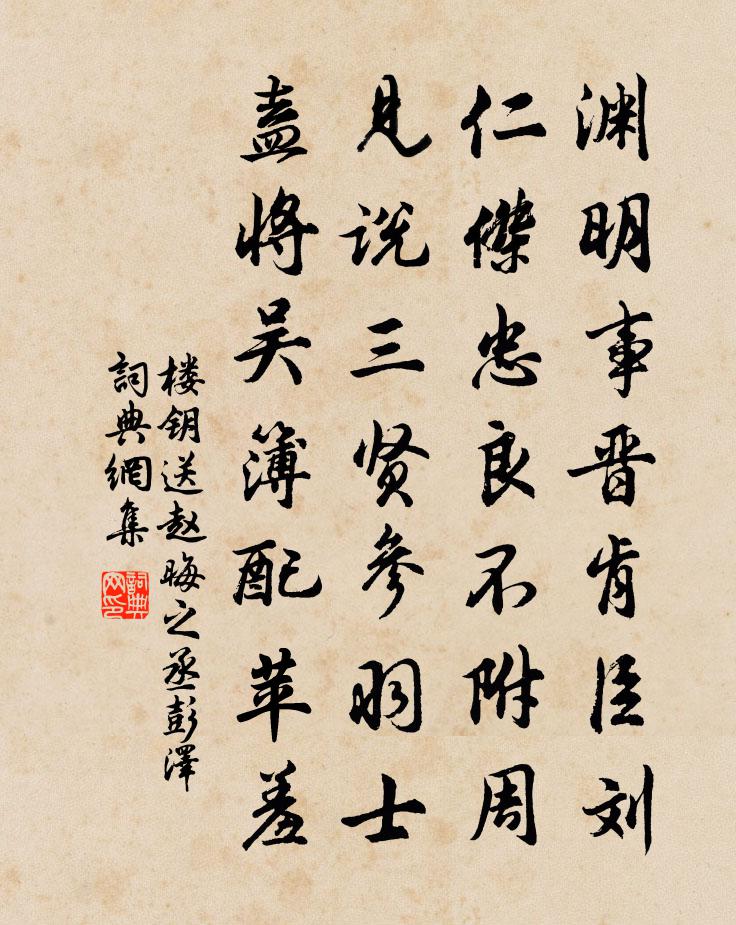 渊明事晋肯臣刘
仁傑忠良不附周
见说三贤参羽士
盍将吴簿配苹羞
楼钥送赵晦之丞彭澤
詞典網集
詞典网印